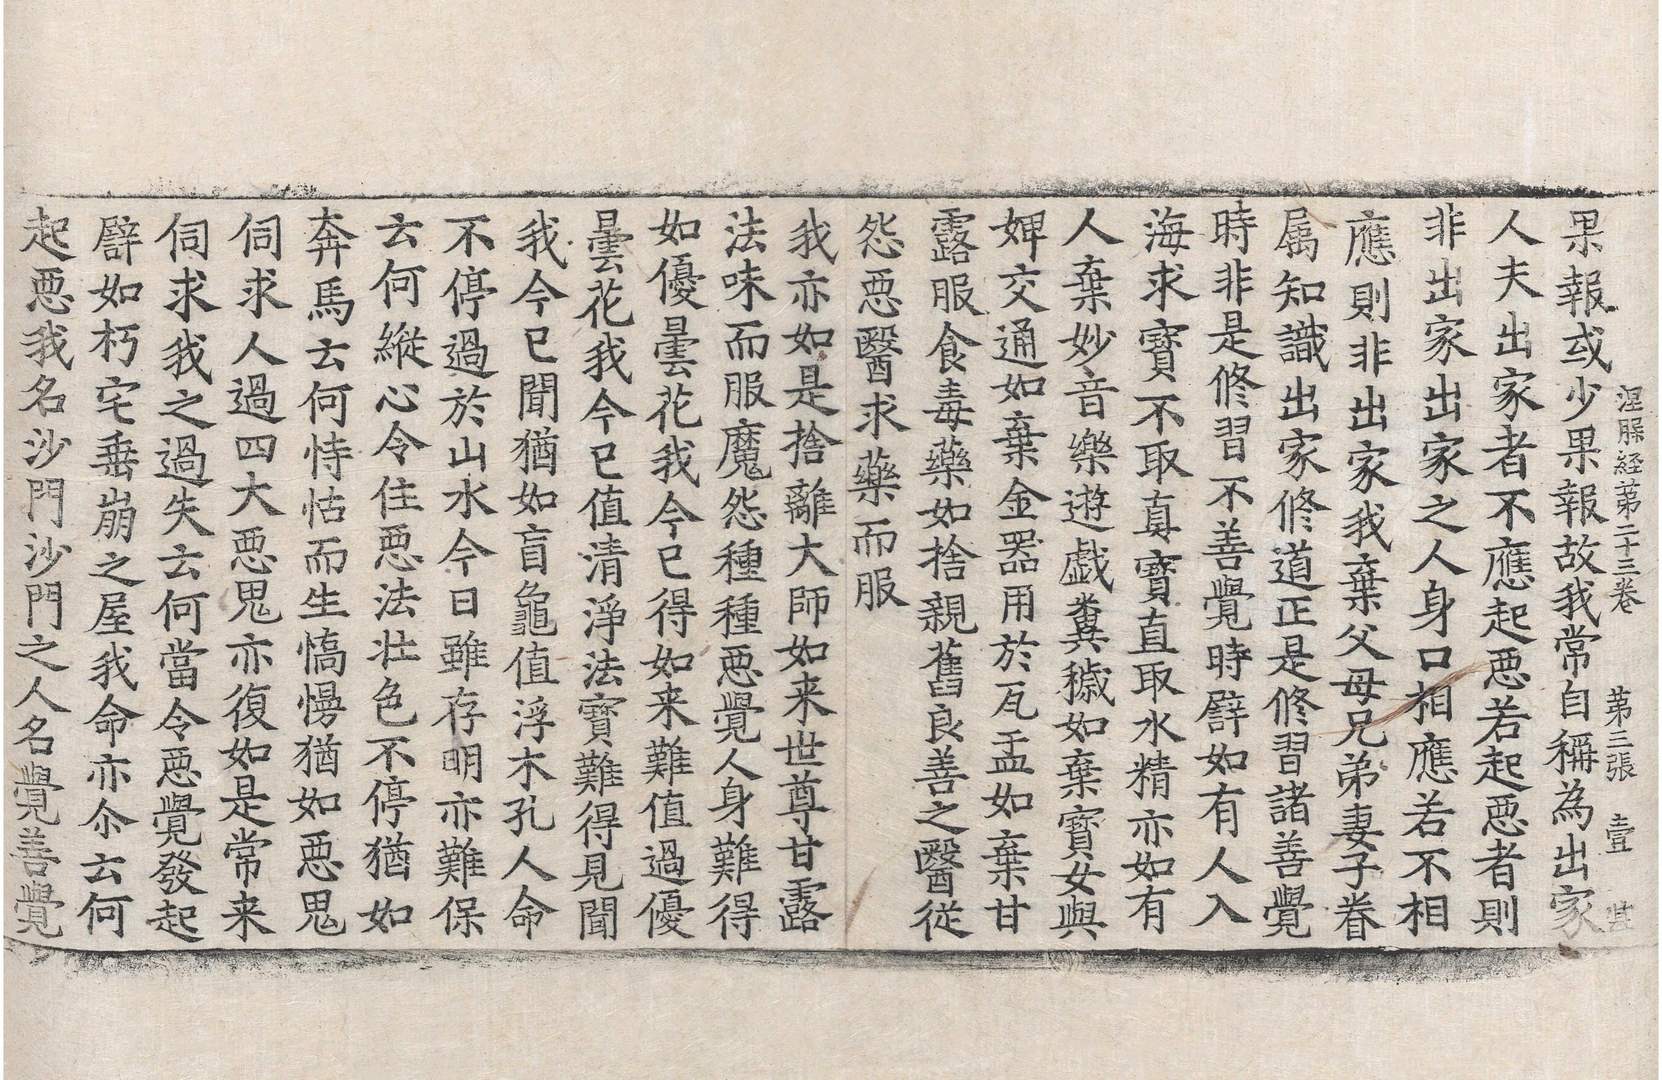 涅槃経苐二十三卷 苐三張 壹
果報或少果報故我常自稱為出家
人夫出家者不應起惡若起惡者則
非出家出家之人身口相應若不相
應則非出家我棄父母兄弟妻子眷
屬知識出家修道正是修習諸善覺
時非是修習不善覺時譬如有人入
海求寶不取真寶直取水精亦如有
人棄妙音樂遊戲糞穢如棄寶女與
婢交通如棄金器用於瓦盂如棄甘
露服食毒藥如捨親舊良善之醫從
怨惡醫求藥而服
我亦如是捨離大師如来世尊甘露
法味而服魔怨種種惡覺人身難得
如優曇花我今已得如来難值過優
曇花我今已值清淨法寶難得見聞
我今已聞猶如盲龜值浮木孔人命
不停過於山水今日雖存明亦難保
云何縱心令住惡法壮色不停猶如
奔馬云何恃怙而生憍慢猶如惡鬼
伺求人過四大惡鬼亦復如是常来
伺求我之過失云何當令惡覺發起
譬如朽宅垂崩之屋我命亦尒云何
起惡我名沙門沙門之人名覺善覺